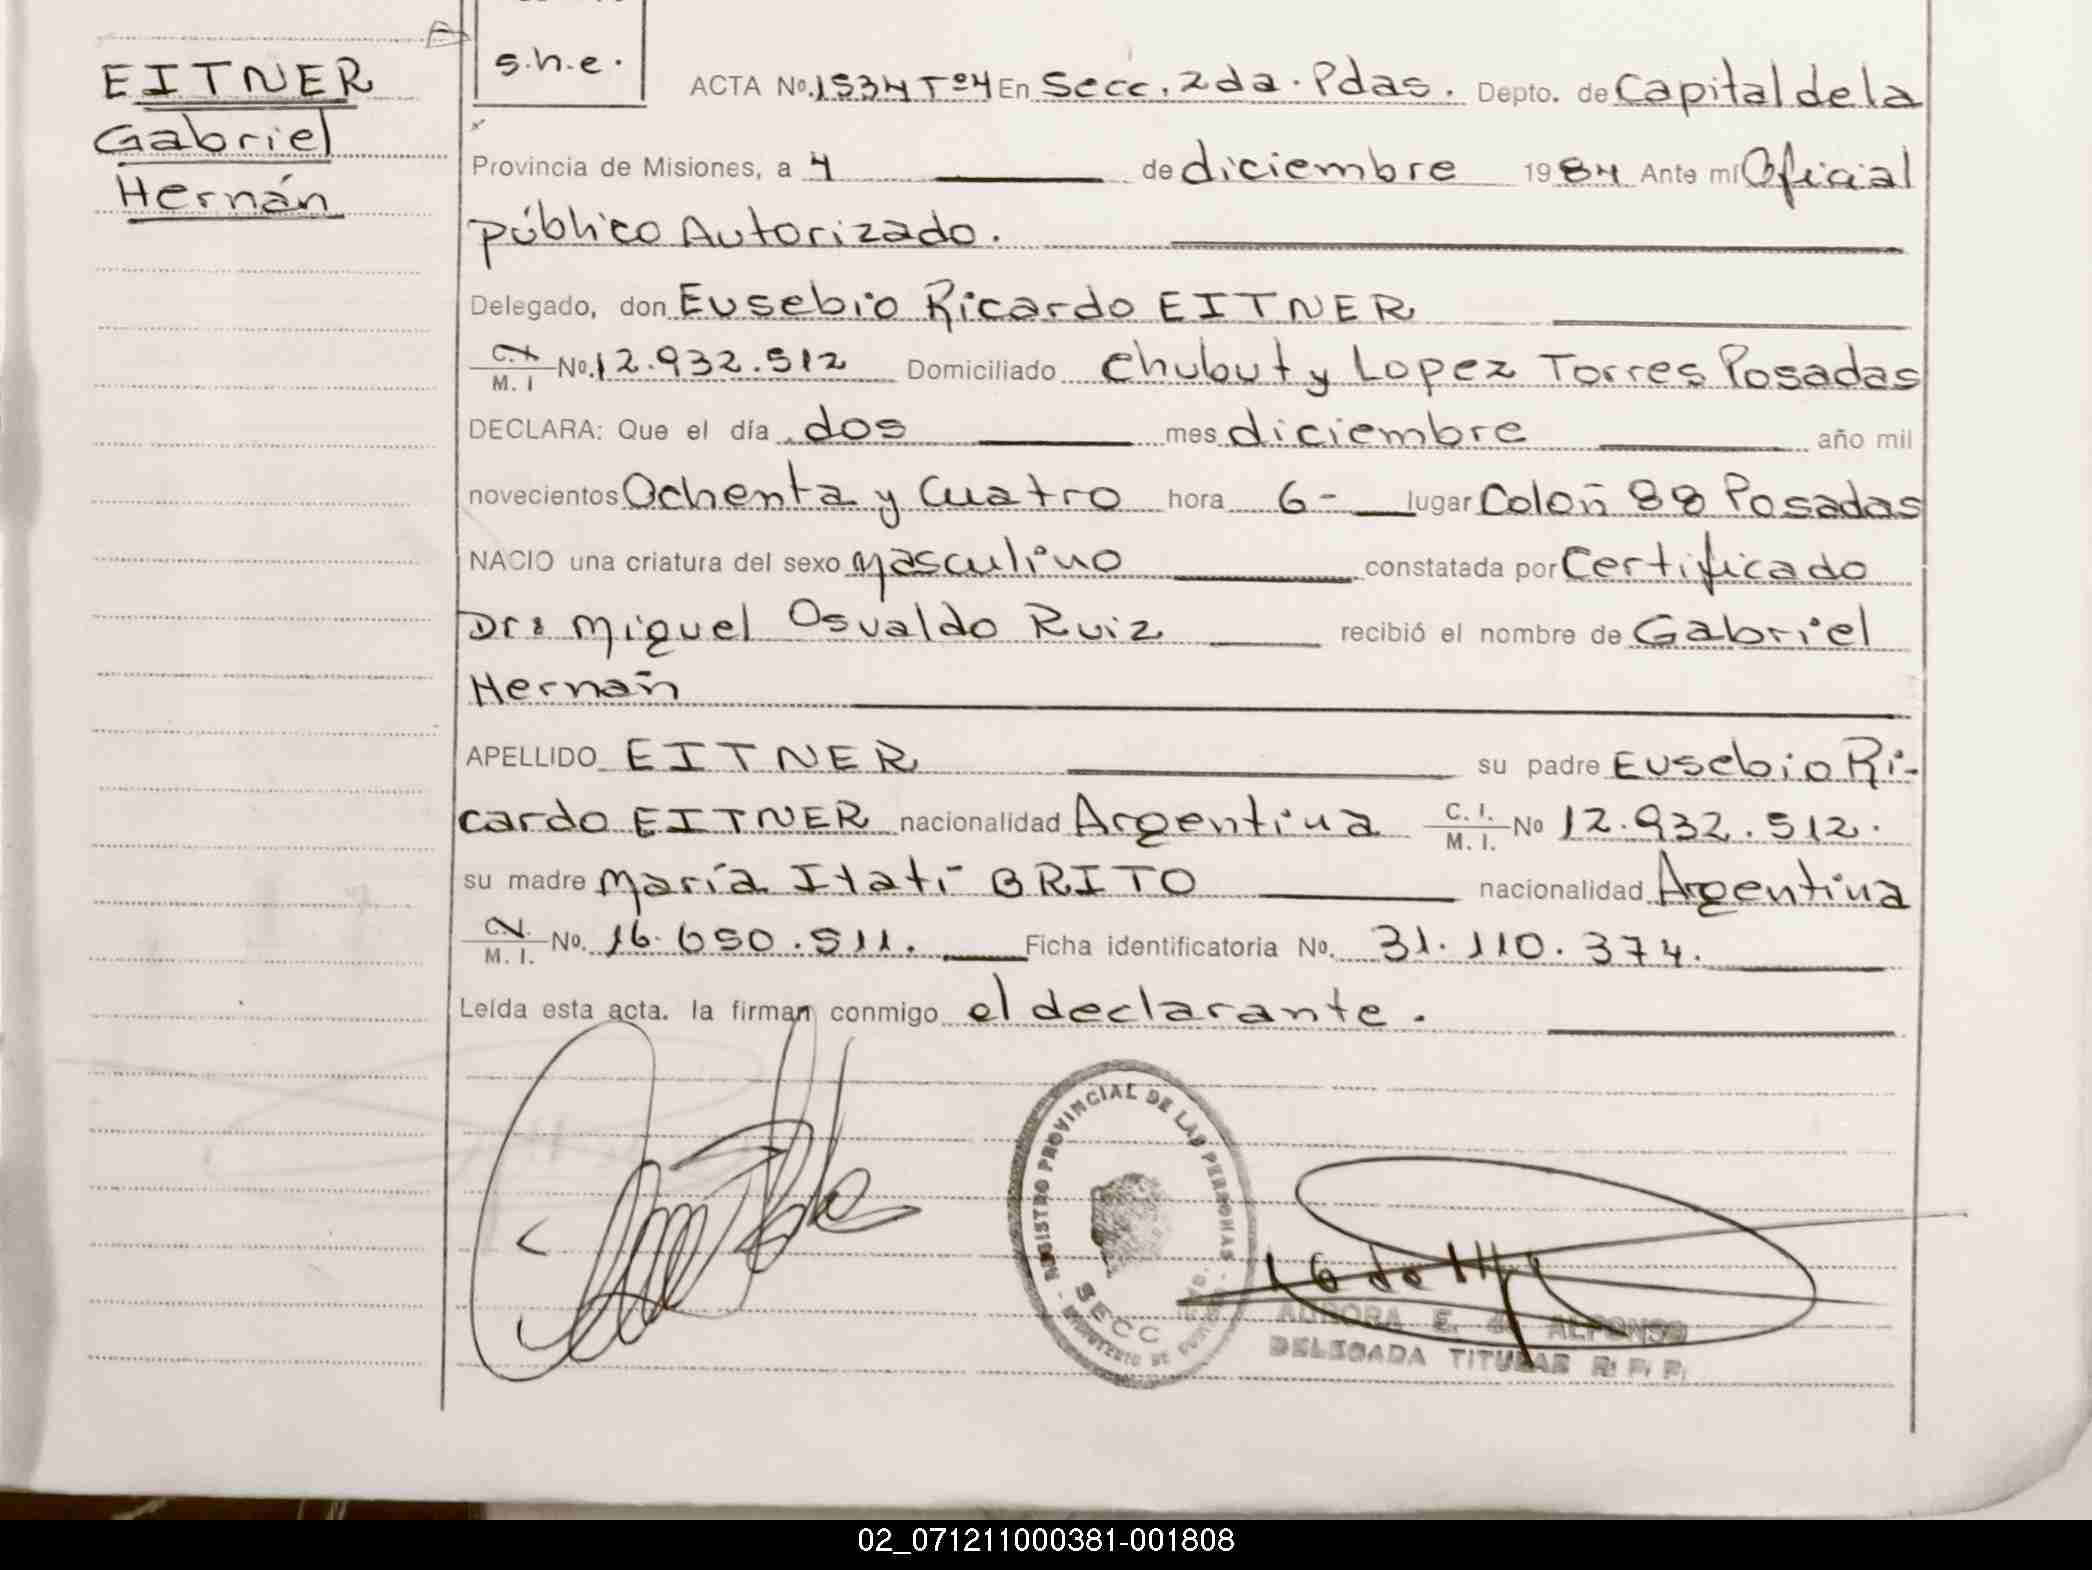 EITNER
Gabriel
Hernán
s.h.e.
ACTA No. 1534 Tº4 En Secc. 2da. Pdas. Depto. de Capital de la
Provincia de Misiones, a 4 de diciembre 1984 Ante mí Oficial
público Autorizado.
Delegado, don Eusebio Ricardo EITNER
C.I. M. I No. 12.932.512 Domiciliado Chubut y Lopez Torres Posadas
DECLARA: Que el día dos mes diciembre año mil
novecientos Ochenta y Cuatro hora 6- lugar Colón 88 Posadas
NACIO una criatura del sexo masculino constatada por Certificado
Dr: Miguel Osvaldo Ruiz recibió el nombre de Gabriel
Hernán
APELLIDO EITNER su padre Eusebio Ri-
cardo EITNER nacionalidad Argentina C. I. M. I. No 12.932.512.
su madre María Itatí BRITO nacionalidad Argentina
C.I. M. I. No. 16.650.511. Ficha identificatoria No. 31.110.374.
Leída esta acta. la firman conmigo el declarante.
REGISTRO PROVINCIAL DE LAS PERSONAS
SECC
AURORA E. de ALFONSO
DELEGADA TITULAR R. P. P.
02_071211000381-001808